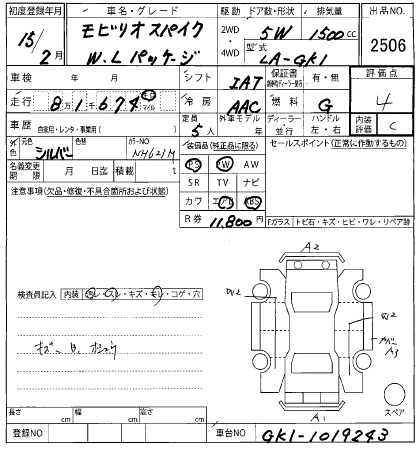 初度登録年月 車名・グレード 駆動 ドア数・形状 排気量 出品NO.
15/2月 モビリオスパイク 2WD 5W 1500cc 2506
W.Lパッケージ 4WD 型式 LA-GK1
車検 年 月 シフト IAT 保証書 有・無 評価点
走行 8万1千674 km マイル 冷房 AAC 燃料 G 4
車歴 自家用・レンタ・事業用( ) 定員 5人 外車モデル 年 ディーラー・並行 ハンドル 左・右 内装評価 C
外色 元色 シルバー 色替 カラーNO NH623M 装備品(純正品に限る) セールスポイント(正常に作動するもの)
名義変更期限 月 日迄 積載 t PS PW AW
SR TV ナビ
注意事項(欠品・修復・不具合箇所および状態) カワ エアB ABS
R券 11,800円 Fガラス トビ石・キズ・ヒビ・ワレ・リペア跡
A2
検査員記入 内装 汚レ・スレ・キズ・モレ・コゲ・穴
キズ
A1
スペア
長さ cm 幅 cm 高さ cm
登録NO 車台NO GK1-1019243